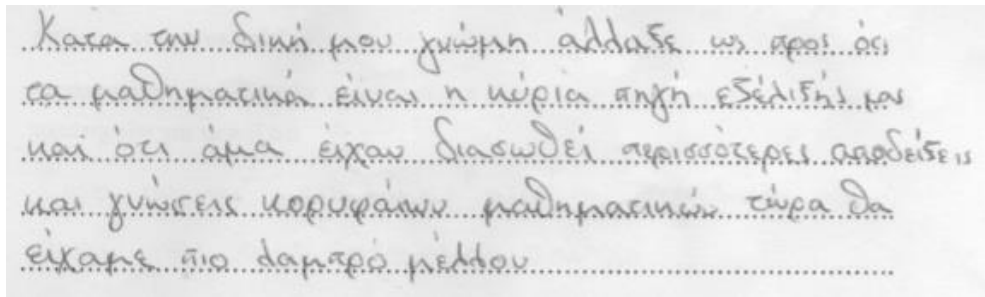 Κατα την δική μου γνώμη άλλαξε ως προς ότι
τα μαθηματικά είναι η κύρια πηγή εξέλιξής μας
και ότι άμα είχαν διασωθεί περισσότερες αποδείξεις
και γνώσεις κορυφαίων μαθηματικών τώρα θα
είχαμε πιο λαμπρό μέλλον